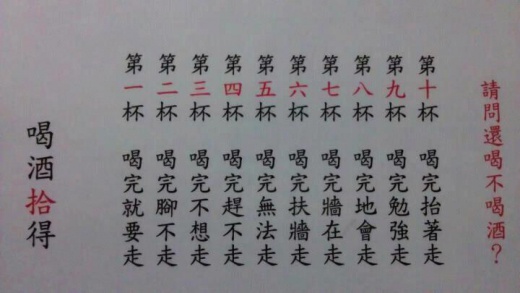 喝酒拾得
第一杯 喝完就要走
第二杯 喝完腳不走
第三杯 喝完不想走
第四杯 喝完趕不走
第五杯 喝完無法走
第六杯 喝完扶牆走
第七杯 喝完牆在走
第八杯 喝完地會走
第九杯 喝完勉強走
第十杯 喝完抬著走
請問還喝不喝酒？